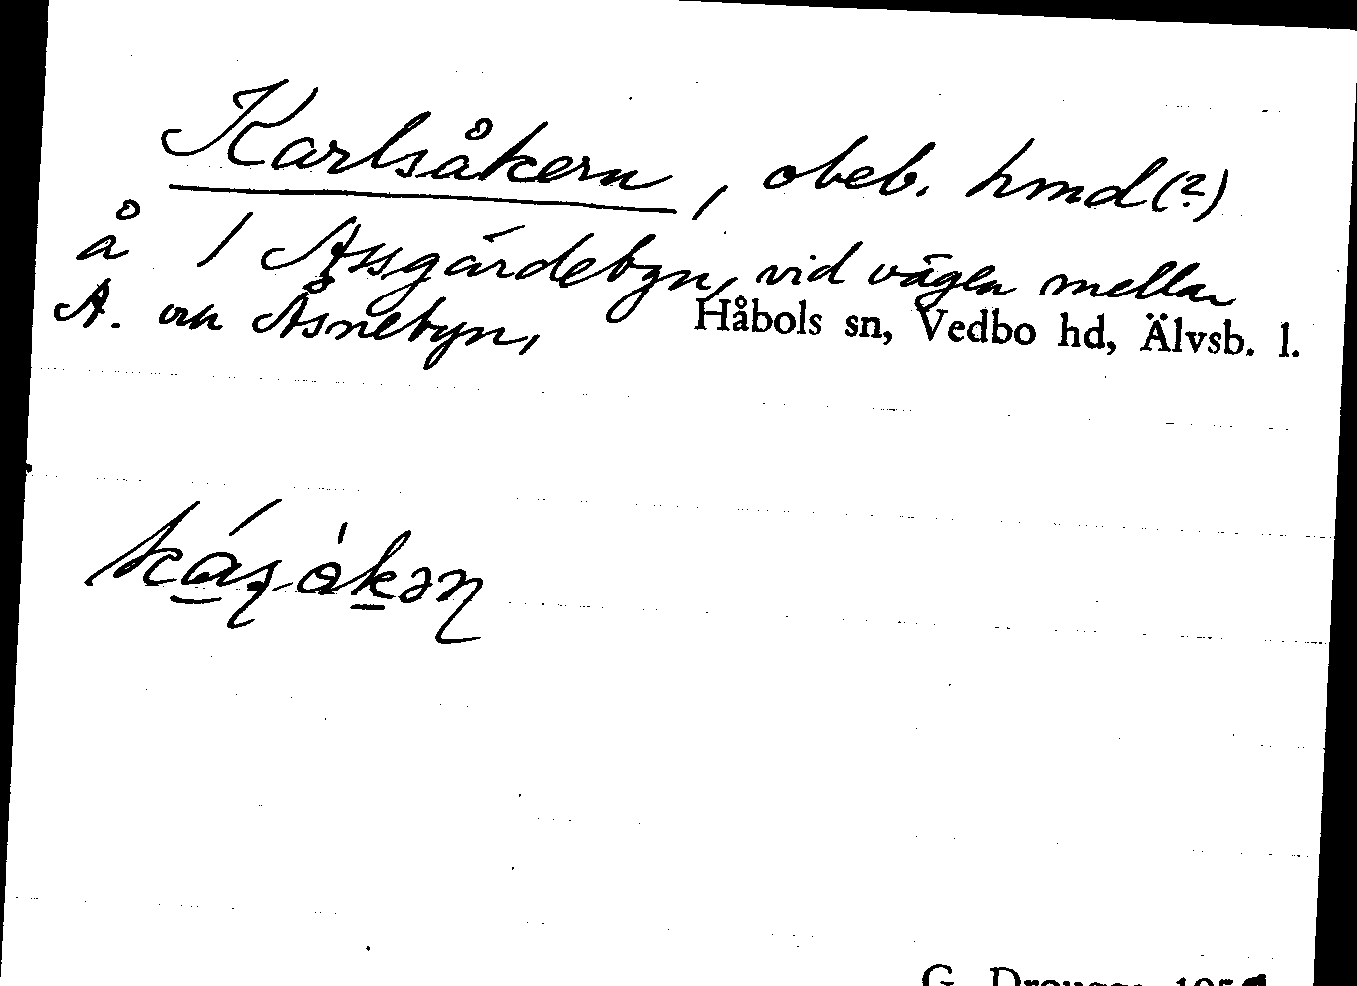 Karlsåkern, obeb. hmd(?)
å 1 Assgärdebyn, vid vägen mellan
A. och Åsnebyn,
Håbols sn, Vedbo hd, Älvsb. l.
G. Drougge